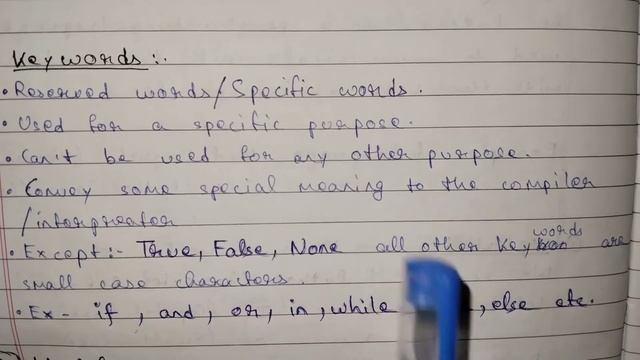 Keywords :-
• Reserved words/Specific words.
• Used for a specific purpose.
• Can't be used for any other purpose.
• Convey some special meaning to the compiler
/interpreator
• Except:- True, False, None all other keywords are
small case charactors.
• Ex- if, and, or, in, while , else etc.